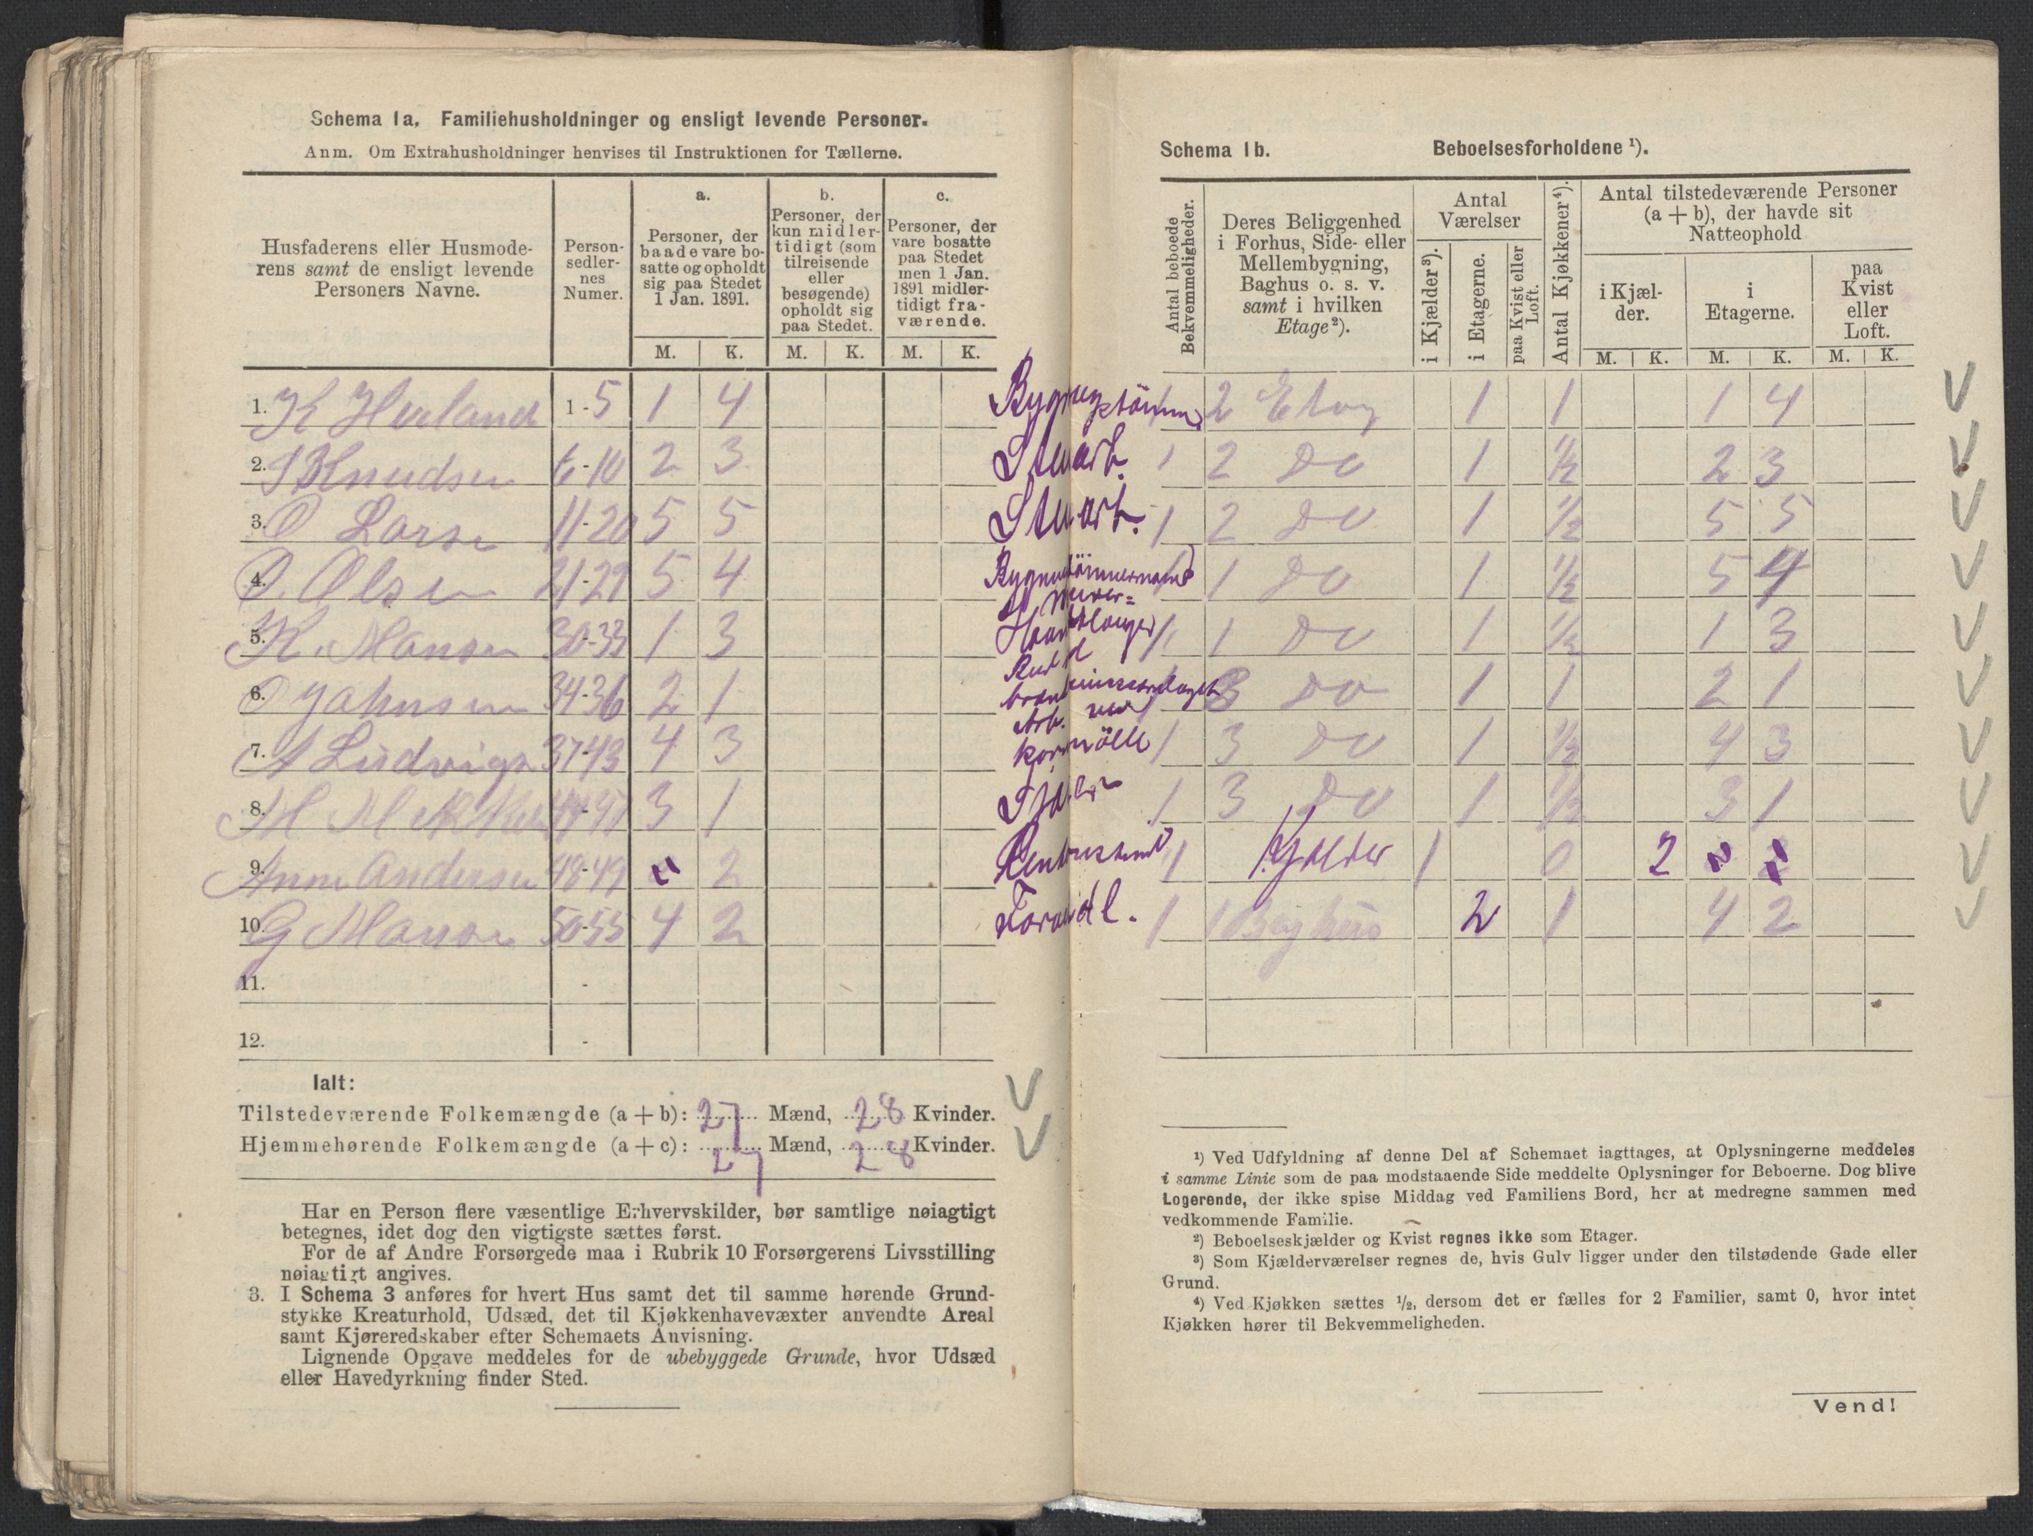 Schema 1a. Familiehusholdninger og ensligt levende Personer.
Anm. Om Extrahusholdninger henvises til Instruktionen for Tællerne.
Husfaderens eller Husmoderens samt de ensligt levende Personers Navne.
Personsedlernes Numer.
a.
Personer, der baade vare bosatte og opholdt sig paa Stedet 1 Jan. 1891.
b.
Personer, der kun midlertidigt (som tilreisende eller besøgende) opholdt sig paa Stedet.
c.
Personer, der vare bosatte paa Stedet men 1 Jan. 1891 midlertidigt fraværende.
M. K. M. K. M. K.
1. K Herland 1-5 1 4
2. S Knudsen 6-10 2 3
3. O Larsen 11-20 5 5
4. O. Olsen 21-29 5 4
5. K. Monsen 30-33 1 3
6. O Johnsen 34-36 2 1
7. A Ludvigs 37-43 4 3
8. M 44-47 3 1
9. Anne Andersen 48-49 " 2
10. G Monsen 50-55 4 2
11. -
12. -
Ialt:
Tilstedeværende Folkemængde (a + b): 27 Mænd, 28 Kvinder.
Hjemmehørende Folkemængde (a + c): 27 Mænd, 28 Kvinder.
Har en Person flere væsentlige Erhvervskilder, bør samtlige nøiagtigt
betegnes, idet dog den vigtigste sættes først.
For de af Andre Forsørgede maa i Rubrik 10 Forsørgerens Livsstilling
nøiagtigt angives.
3. I Schema 3 anføres for hvert Hus samt det til samme hørende Grund-
stykke Kreaturhold, Udsæd, det til Kjøkkenhavevæxter anvendte Areal
samt Kjøreredskaber efter Schemaets Anvisning.
Lignende Opgave meddeles for de ubebyggede Grunde, hvor Udsæd
eller Havedyrkning finder Sted.
Schema 1b. Beboelsesforholdene ¹).
Antal beboede Bekvemmeligheder.
Deres Beliggenhed i Forhus, Side- eller Mellembygning, Baghus o. s. v. samt i hvilken Etage²).
Antal Værelser
i Kjælder³).
i Etagerne.
paa Kvist eller Loft.
Antal Kjøkkener⁴).
Antal tilstedeværende Personer (a + b), der havde sit Natteophold
i Kjælder.
i Etagerne.
paa Kvist eller Loft.
M. K. M. K. M. K.
1 2 Etag 1 1 1 4
Stuarb. 1 2 Do 1 ½ 2 3
Stuarb. 1 2 Do 1 ½ 5 5
1 1 Do 1 ½ 5 4
Haandlanger 1 1 Do 1 ½ 1 3
1 3 Do 1 1 2 1
Arb. ved Kornmölle 1 3 Do 1 ½ 4 3
1 3 Do 1 ½ 3 1
1 Kjelder 1 0 2
1 1 Baghus 2 1 4 2
¹) Ved Udfyldning af denne Del af Schemaet iagttages, at Oplysningerne meddeles
i samme Linie som de paa modstaaende Side meddelte Oplysninger for Beboerne. Dog blive
Logerende, der ikke spise Middag ved Familiens Bord, her at medregne sammen med
vedkommende Familie.
²) Beboelseskjælder og Kvist regnes ikke som Etager.
³) Som Kjælderværelser regnes de, hvis Gulv ligger under den tilstødende Gade eller
Grund.
⁴) Ved Kjøkken sættes ½, dersom det er fælles for 2 Familier, samt 0, hvor intet
Kjøkken hører til Bekvemmeligheden.
Vend!